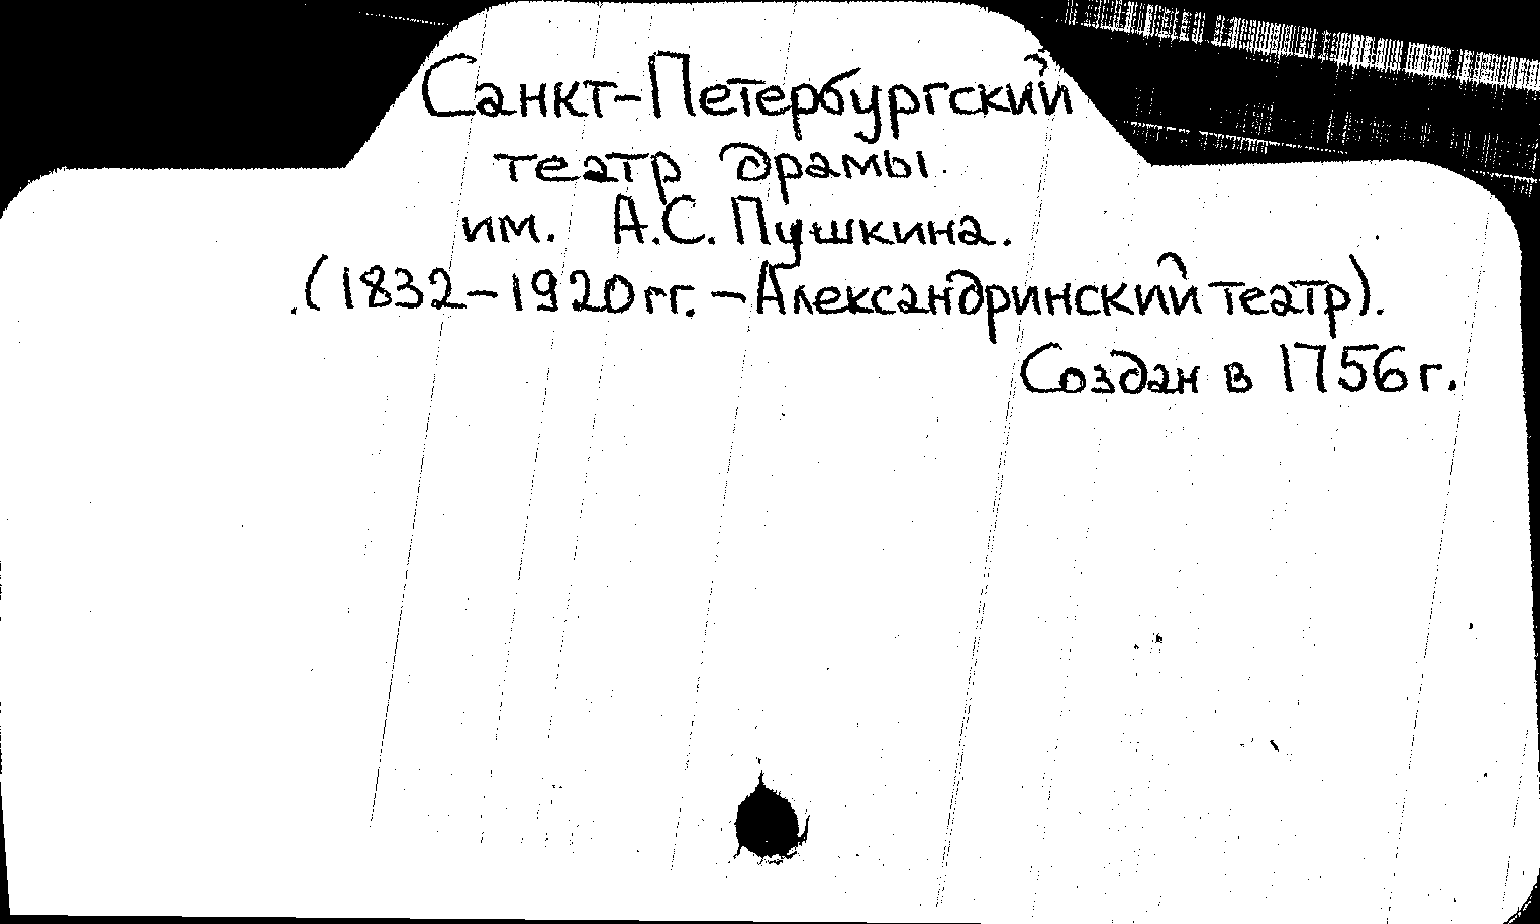 Санкт-Петербургский
театр драмы
им. А.С. Пушкина.
(1832-1920гг. - Александринский театр).
Создан в 1756г.